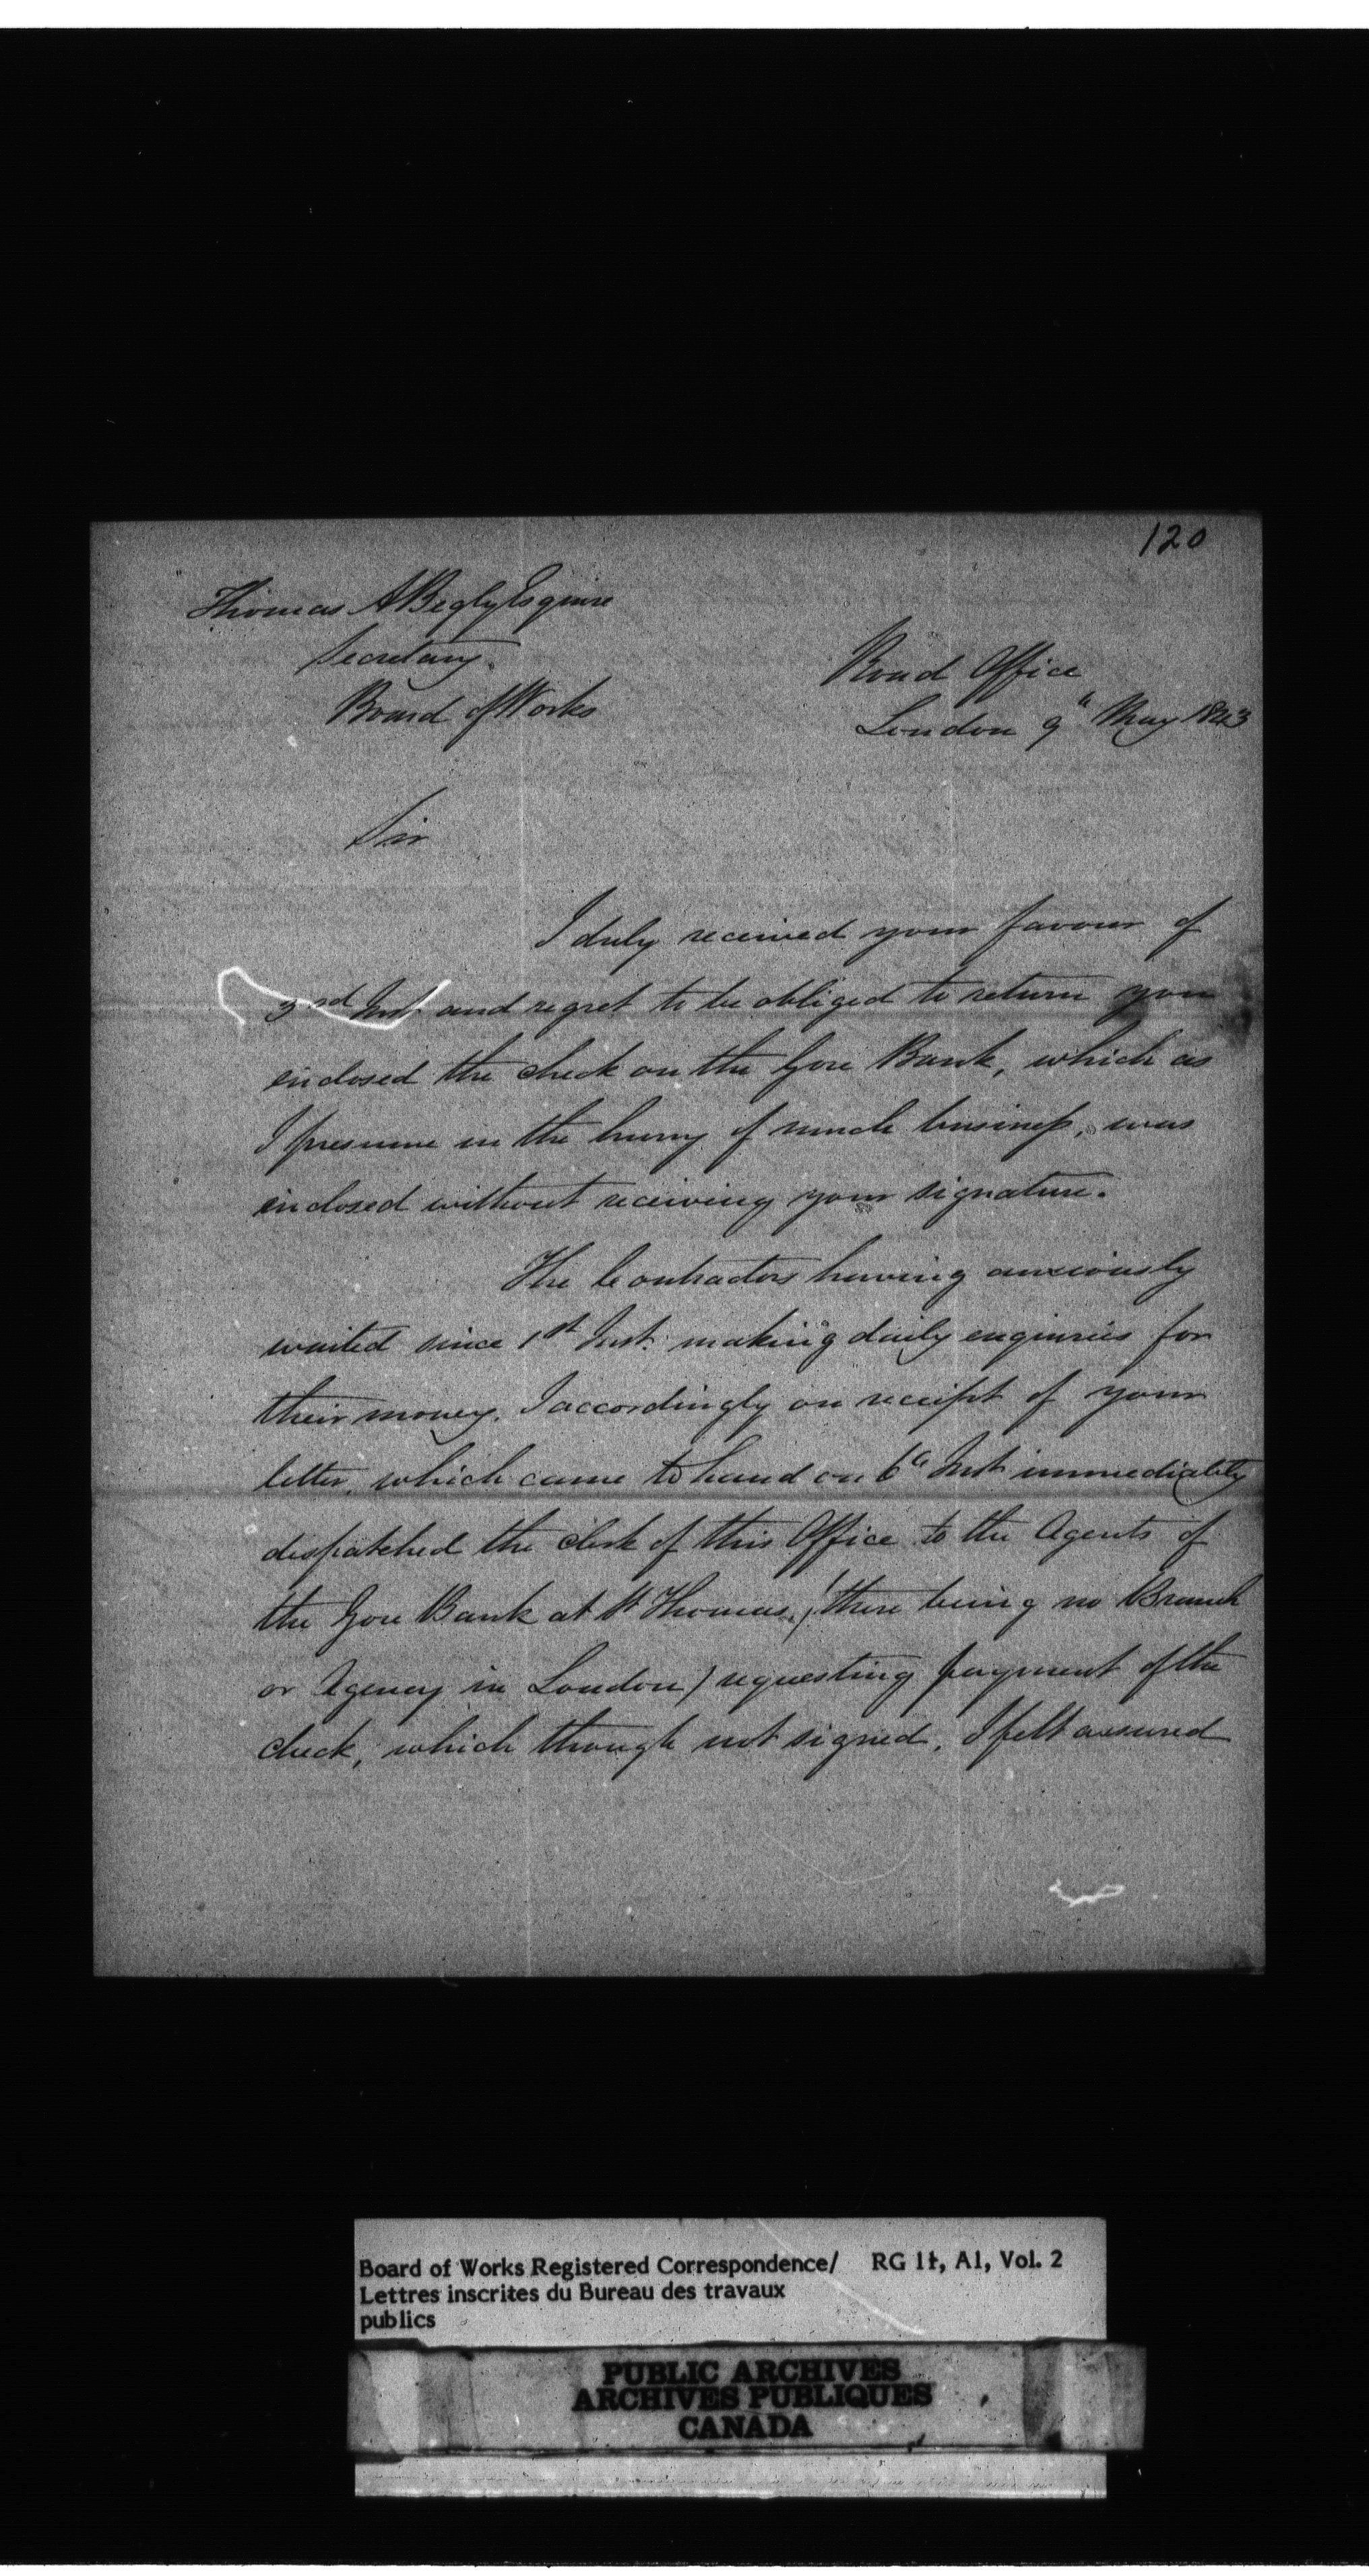 120
Thomas A Begly Esquire
Secretary
Board of Works
Road Office
London 9th May 1843
Sir
I duly received your favour of
3rd Inst and regret to be obliged to return you
enclosed the check on the Gore Bank, which as
I presume in the hurry of much business, was
enclosed without receiving your signature.
The Contractors having anxiously
waited since 1st Inst. making daily enquiries for
their money. I accordingly on receipt of your
letter, which came to hand on 6th Inst immediately
despatched the clerk of this Office to the Agents of
the Gore Bank at St Thomas, (there being no Branch
or Agency in London) requesting payment of the
check, which though not signed, I felt assured
Board of Works Registered Correspondence/ RG 11, A1, Vol. 2
Lettres inscrites du Bureau des travaux
publics
PUBLIC ARCHIVES
ARCHIVES PUBLIQUES
CANADA